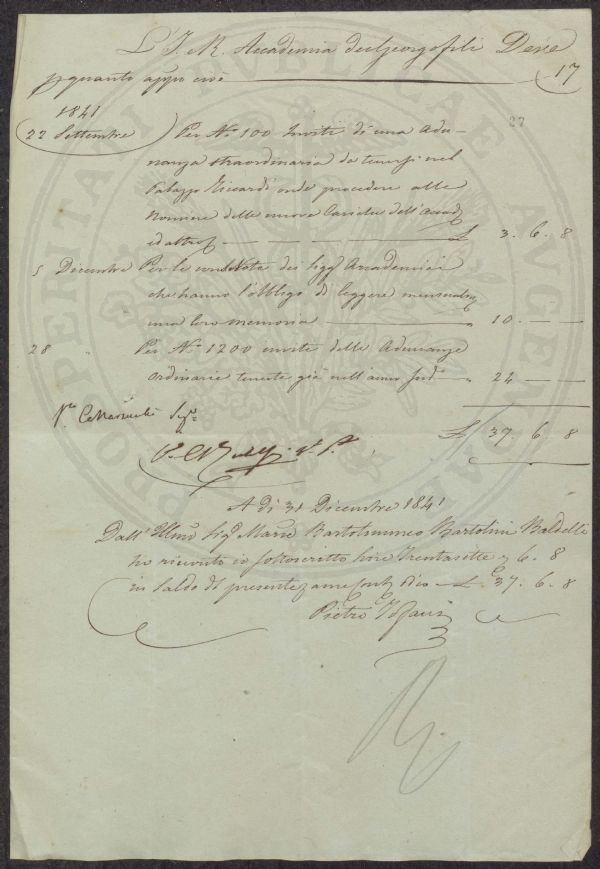 L'I. e R. Accademia de Georgofili Deve
17
p quanto appo cioè
1841
27
22 Settembre Per No. 100 Inviti di una Adu-
nanza straordinaria da tenersi nel
Palazzo Riccardi onde procedere alle
Nomine delle nuove Cariche dell'Accad
ed altro £ 3. 6. 8
5 Dicembre Per le Note dei Sigg Accademici
che hanno l'obbligo di leggere mensualm
una loro memoria 10. — —
28 " Per No. 1200 inviti delle Adunanze
Ordinarie tenute già nell'anno sudo 24 — —
£ 37. 6. 8
A di 31 Dicembre 1841
Dall' Illmo Sigr Marse Bartolommeo Bartolini Baldelli
ho ricevuto io sottoscritto Lire Trentasette e 6. 8
in saldo di presente £ 37. 6. 8
Pietro
PROSPERITATI PUBLICAE AUGENDAE